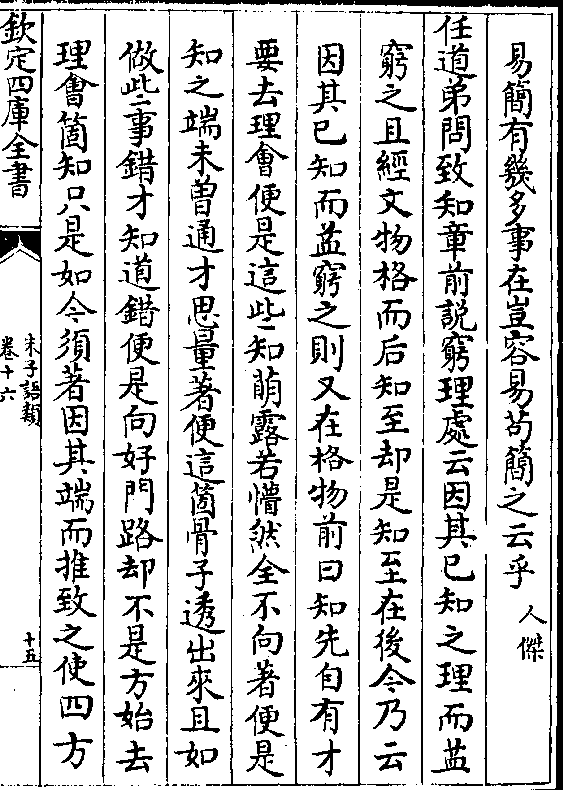 易簡有幾多事在豈容易苟簡之云乎 人傑
任道弟問致知章前說窮理處云因其已知之理而益
窮之且經文物格而后知至却是知至在後今乃云
因其已知而益窮之則又在格物前曰知先自有才
要去理會便是這些知萌露若懵然全不向著便是
知之端未曽通才思量著便這箇骨子透出來且如
做些事錯才知道錯便是向好門路却不是方始去
理會箇知只是如今須著因其端而推致之使四方
欽定四庫全書
朱子語類
卷十六
十五